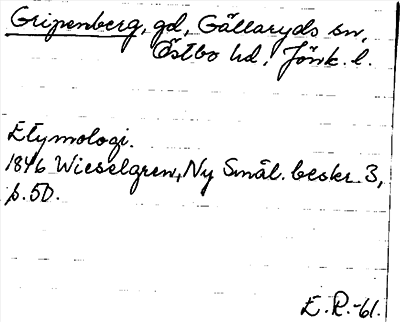 Gripenberg, gd, Gällaryds sn,
Östbo hd, Jönk. l.
Etymologi.
1846 Wieselgren, Ny Smål. beskr. 3,
p. 50.
E. R. -61.